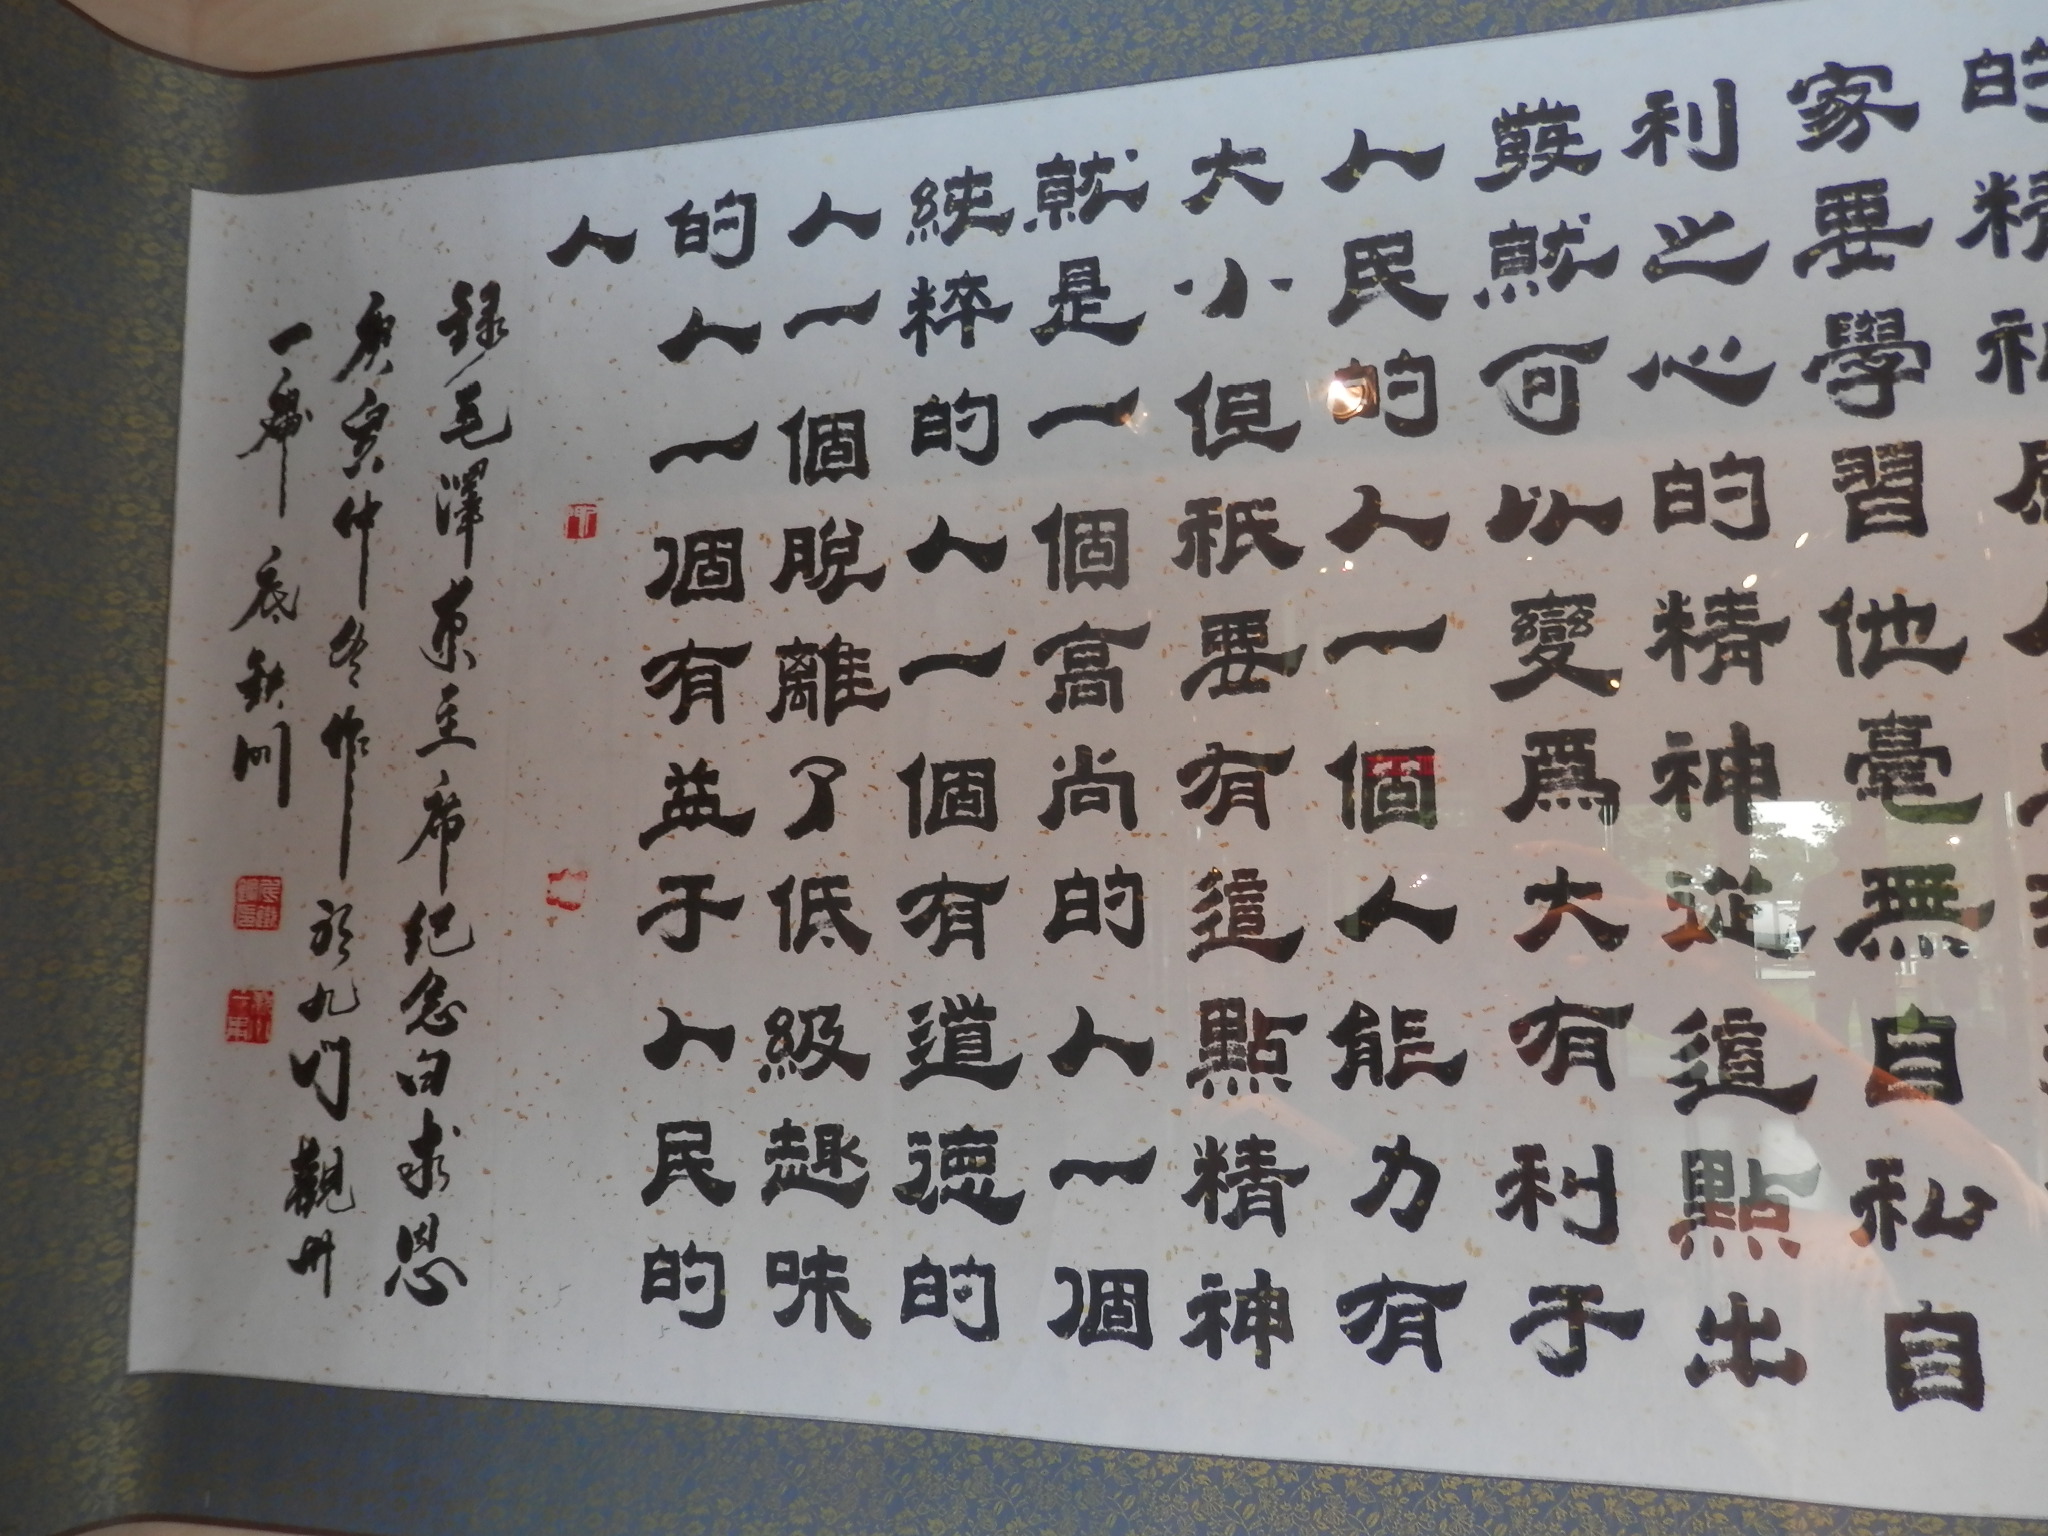 的精神
家要學習他毫無自私自
利之心的精神從這點出
發就可以變爲大有利于
人民的人一個人能力有
大小但祇要有這點精神
就是一個高尚的人一個
純粹的人一個有道德的
人一個脫離了低級趣味
的人一個有益于人民的
人
錄毛澤東主席紀念白求恩
庚寅仲冬作於九門觀